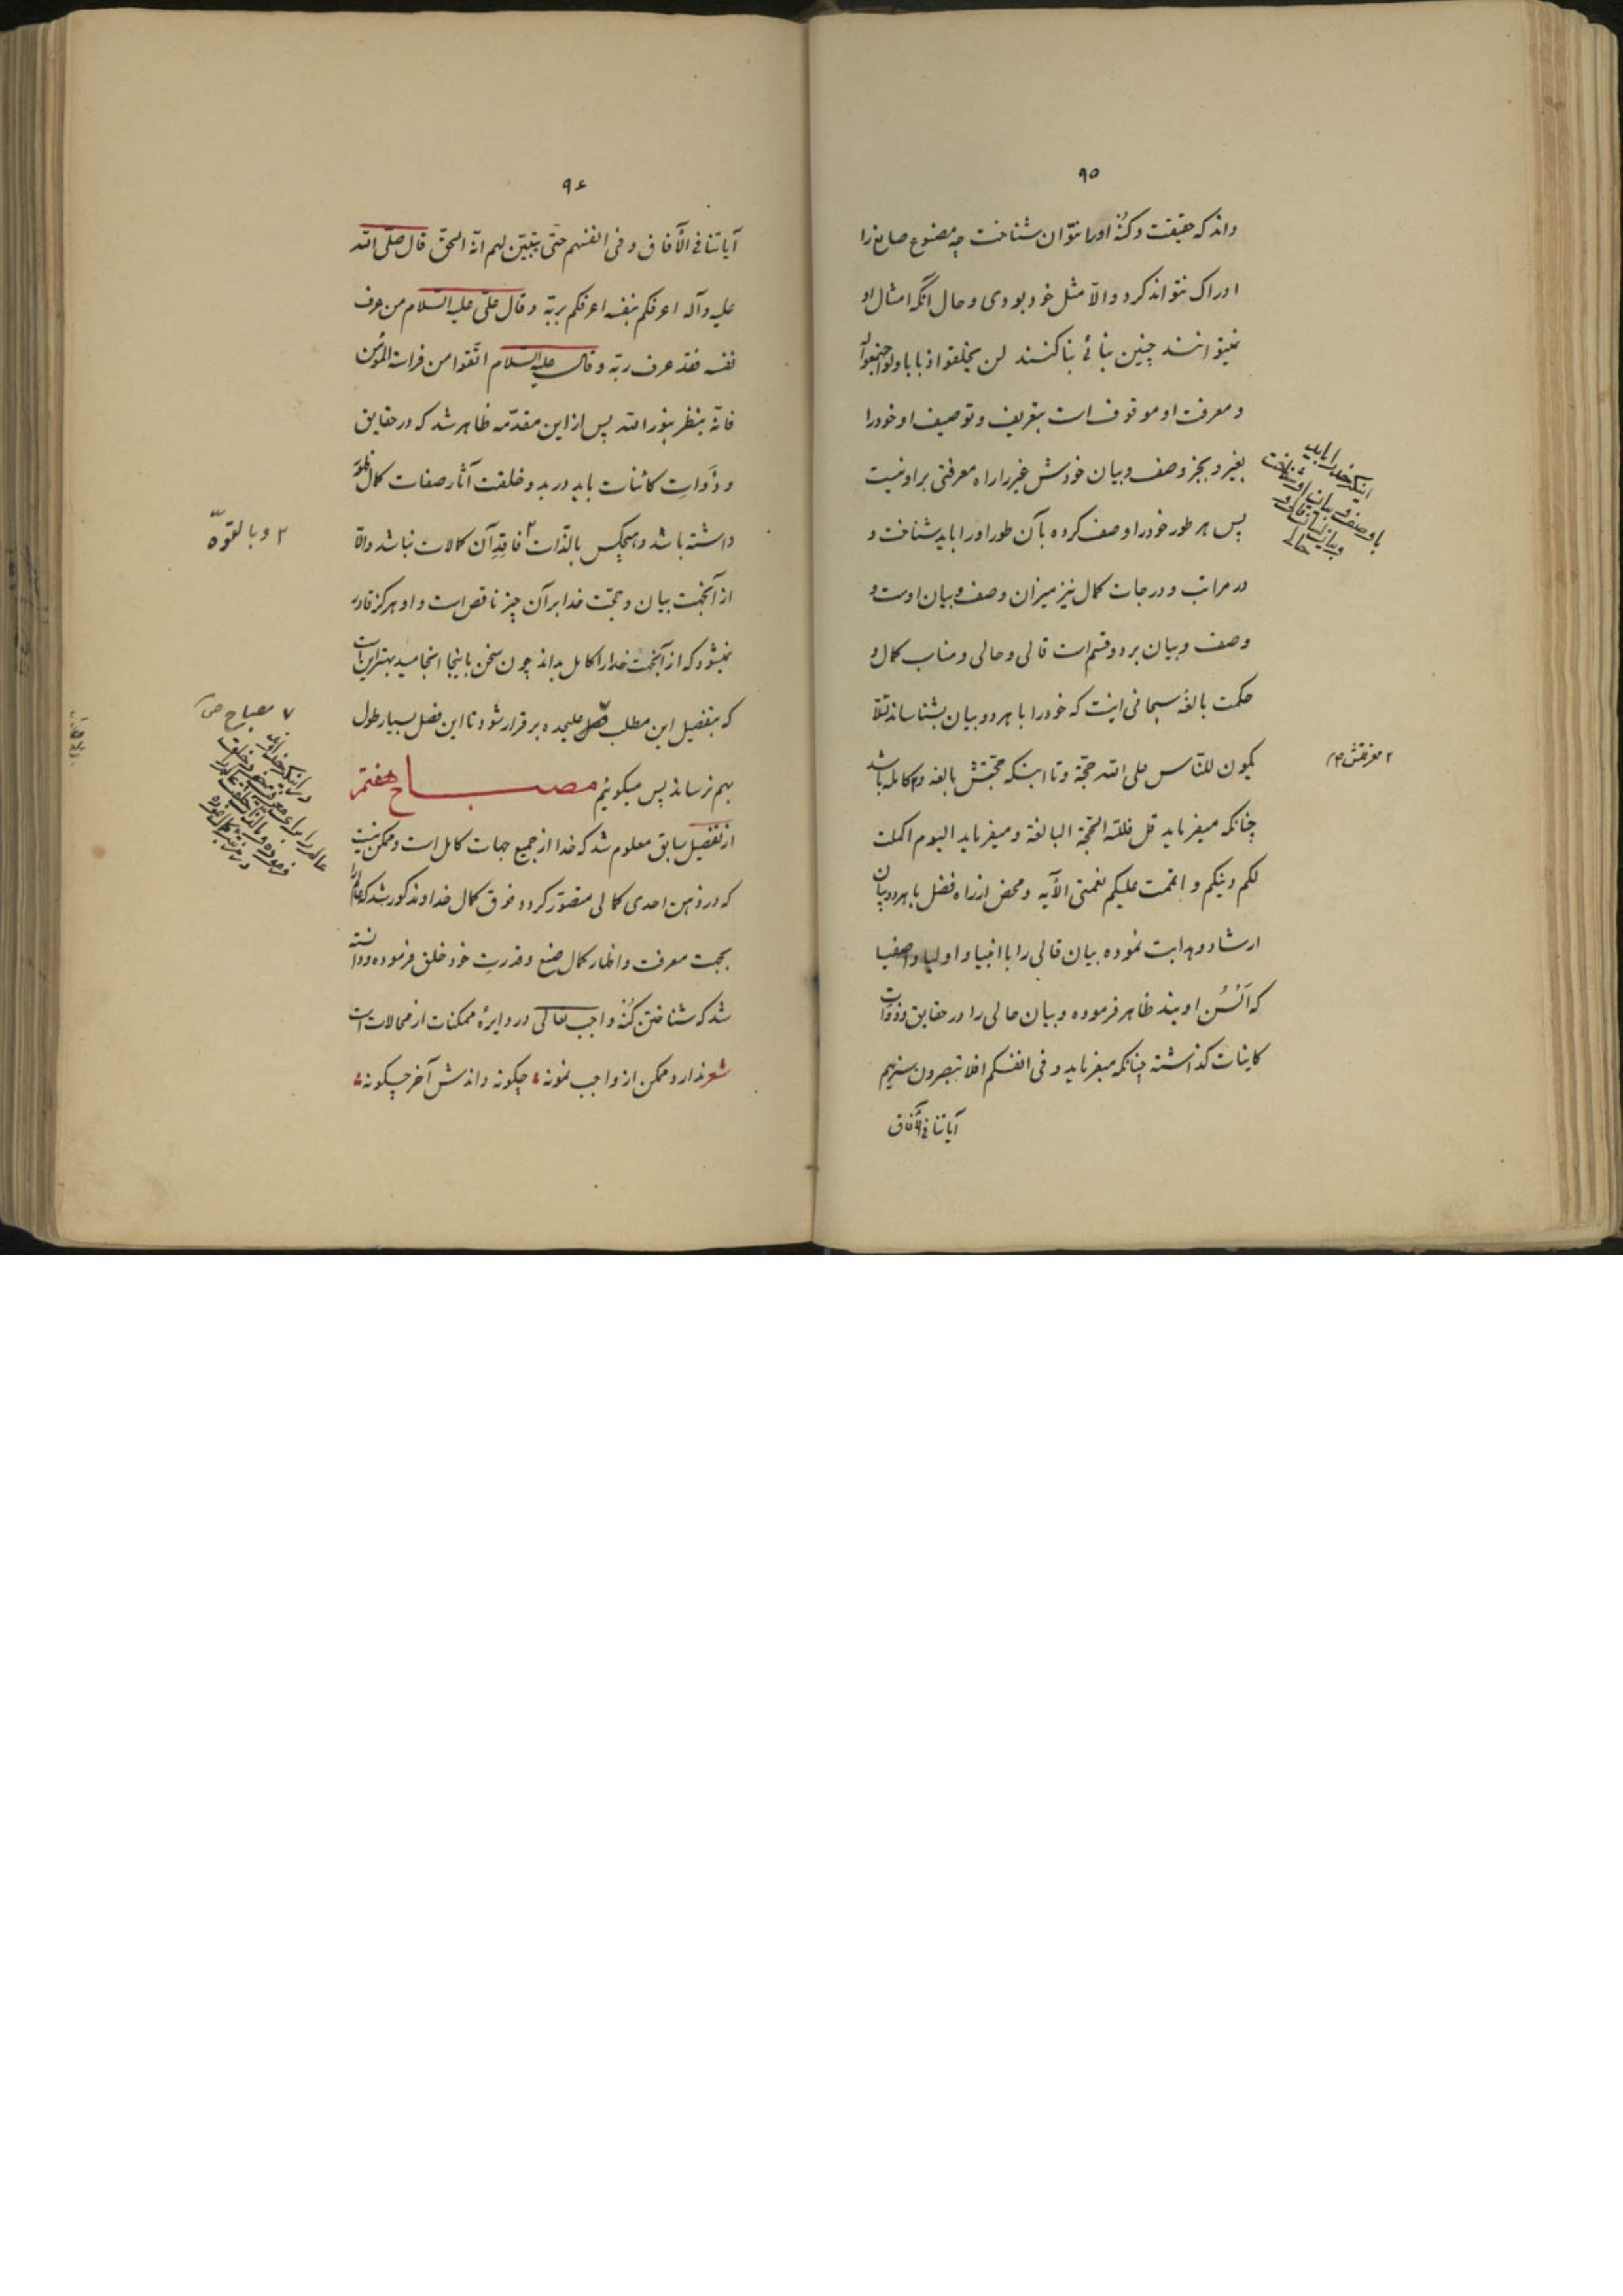 ۹۵
داند که حقیقت و کُنْه او را نتوان شناخت چه مصنوع صانع را
ادراک نتواند کرد و الّا مثل خود بودی و حال آنکه امثال او
نمیتوانند چنین بنائی بنا کنند لن یخلقوا ذبابا ولو اجتمعوا له
و معرفت او موقوف است بتعریف و توصیف او خود را
بغیر و بجز وصف و بیان خودش غیر را راه معرفتی بر او نیست
پس هر طور خود را وصف کرده بآن طور او را باید شناخت و
در مراتب و درجات کمال نیز میزان وصف و بیان اوست و
وصف و بیان بر دو قسم است قالی و حالی و مناسب کمال و
حکمت بالغهٔ سبحانی اینست که خود را با هر دو بیان بشناساند لئلّا
یکون للنّاس علی الله حجّة و تا اینکه حجّتش بالغه و ۲ کامله باشد
چنانکه میفرماید قل فللّه الحجّة البالغة و میفرماید الیوم اکملت
لکم دینکم و اتممت علیکم نعمتی الآیه و محض از راه فضل با هر دو بیان
ارشاد و هدایت نموده بیان قالی را با انبیا و اولیا و اصفیا
که اَلْسُن اویند ظاهر فرموده و بیان حالی را در حقایق و ذوات
کاینات گذاشته چنانکه میفرماید و فی انفسکم افلا تبصرون سنریهم
آیاتنا فی الآفاق
اینکه خدا را باید
با وصف و بیان او شناخت
و بیان قالی و
حالی
۲ معرفتش
۹۶
آیاتنا فی الآفاق و فی انفسهم حتّی یتبیّن لهم انّه الحقّ قال صلّی الله
علیه و آله اعرفکم بنفسه اعرفکم بربّه و قال علیّ علیه السّلام من عرف
نفسه فقد عرف ربّه و قال علیه السّلام اتّقوا من فراسة المؤمن
فانّه ینظر بنور الله پس از این مقدّمه ظاهر شد که در حقایق
و ذَوات کائنات باید در ید و خلقت آثار صفات کمال
داشته باشد و هیچکس بالذّات ۲ فاقدِ آن کمالات نباشد و الّا
از آنجهت بیان و حجّت خدا بر آن چیز ناقص است و او هرگز قادر
نمیشود که از آنجهت خدا را کامل بداند چون سخن باینجا انجامید بهتر این است
که بتفصیل این مطلب فصل علیحده برقرار شود تا این فصل بسیار طول
بهم نرساند پس میگوئیم مصباح هفتم
از تفصیل سابق معلوم شد که خدا از جمیع جهات کامل است و ممکن نیست
که در ذهن احدی کمالی متصوّر گردد فوق کمال خداوند و مذکور شد که عالم را
بجهت معرفت و اظهار کمال صنع و قدرت خود خلق فرموده و دانسته
شد که شناختن کُنْه واجب تعالی در دایرهٔ ممکنات از محالات است
شعر ندارد ممکن از واجب نمونه چگونه داندش آخر چگونه
۲ و بالقوّة
۷ مصباح
در اینکه خداوند
عالم را برای معرفت خود خلق
فرموده